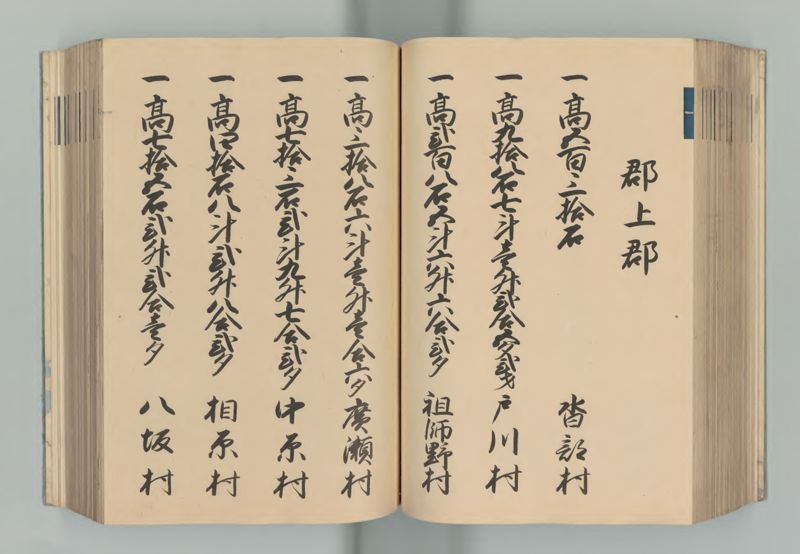 郡上郡
一 高五百三拾石 沓部村
一 高九拾八石七斗壱升弐合五夕弐才 戸川村
一 高弐百八石五斗六升六合弐夕 祖師野村
一 高三拾八石六斗壱升壱合六夕 廣瀬村
一 高七拾三石弐斗九升七合弐夕 中原村
一 高四拾石八斗弐升八合弐夕 相原村
一 高七拾五石弐升弐合壱夕 八坂村